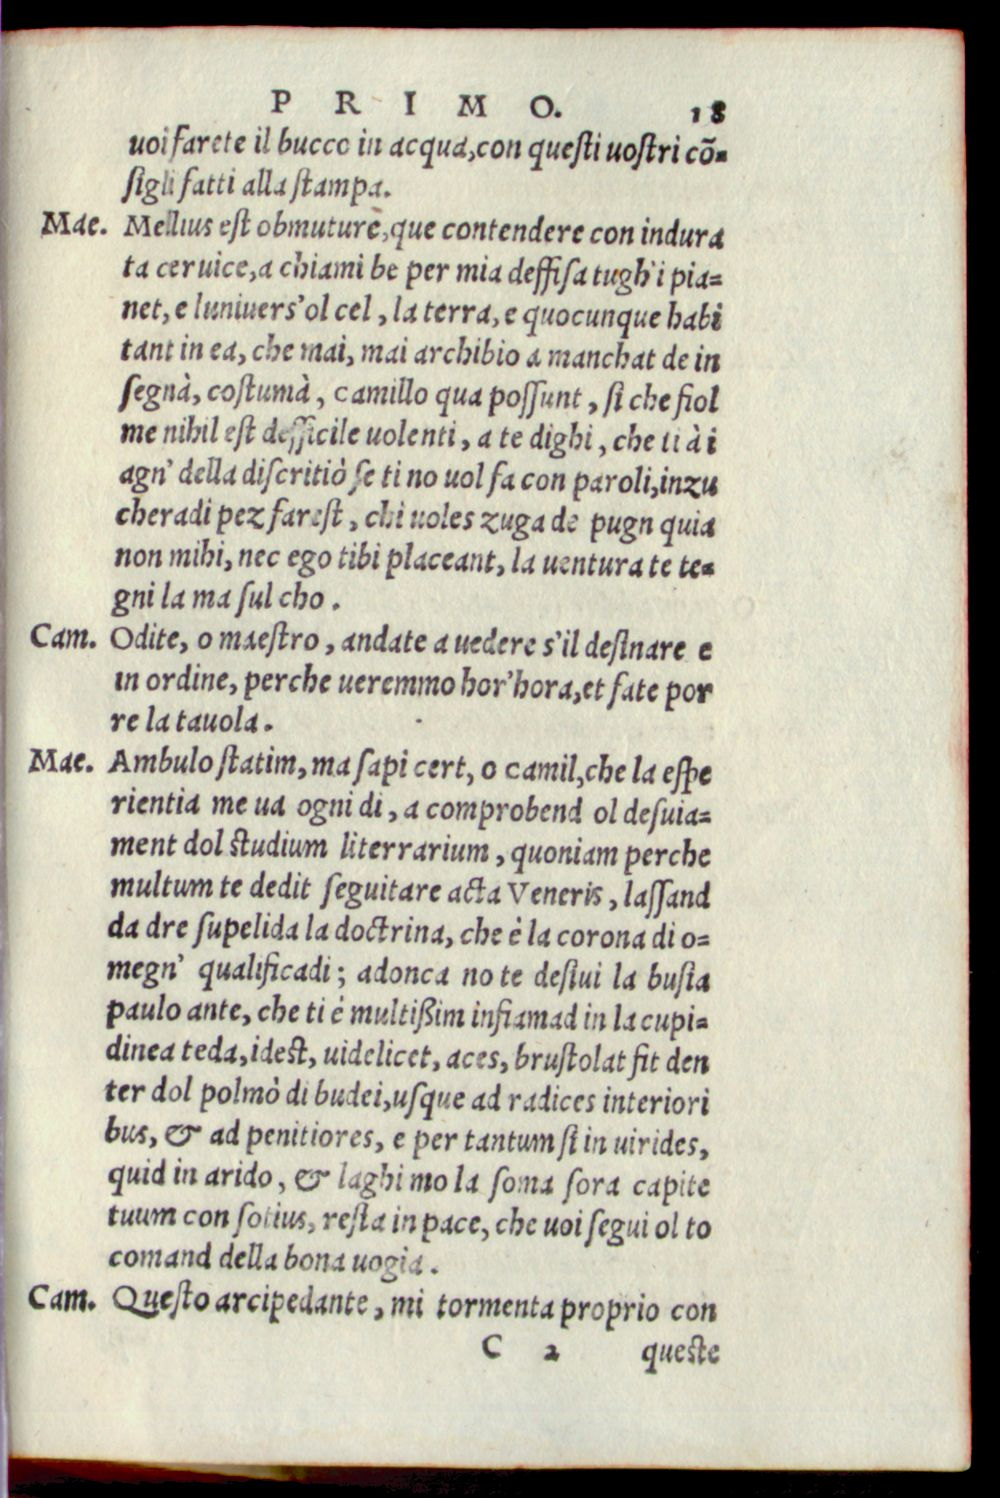 PRIMO. 18
uoi farete il bucco in acqua, con questi uostri cõ-
sigli fatti alla stampa.
Mae. Mellius est obmuturẽ, que contendere con indura
ta ceruice, a chiami be per mia deffisa tugh'i pia=
net, e luniuers'ol cel, la terra, e quocunque habi
tant in ea, che mai, mai archibio a manchat de in
segnà, costumà, camillo qua possunt, si che fiol
me nihil est defficile uolenti, a te dighi, che ti à i
agn' della discritiò se ti no uol fa con paroli, inzu
cheradi pez farest, chi uoles zuga de pugn quia
non mihi, nec ego tibi placeant, la uentura te te-
gni la ma sul cho.
Cam. Odite, o maestro, andate a uedere s'il desinare e
in ordine, perche ueremmo hor'hora, et fate por
re la tauola.
Mae. Ambulo statim, ma sapi cert, o camil, che la espe
rientia me ua ogni di, a comprobend ol desuia=
ment dol studium literrarium, quoniam perche
multum te dedit seguitare acta Veneris, lassand
da dre supelida la doctrina, che è la corona di o=
megn' qualificadi; adonca no te desiui la busia
paulo ante, che ti é multißim infiamad in la cupi=
dinea teda, idest, uidelicet, aces, brustolat fit den
ter dol polmò di budei, usque ad radices interiori
bus, & ad penitiores, e per tantum si in uirides,
quid in arido, & laghi mo la soma sora capite
tuum con sotius, resta in pace, che uoi segui ol to
comand della bona uogia.
Cam. Questo arcipedante, mi tormenta proprio con
C 2 queste